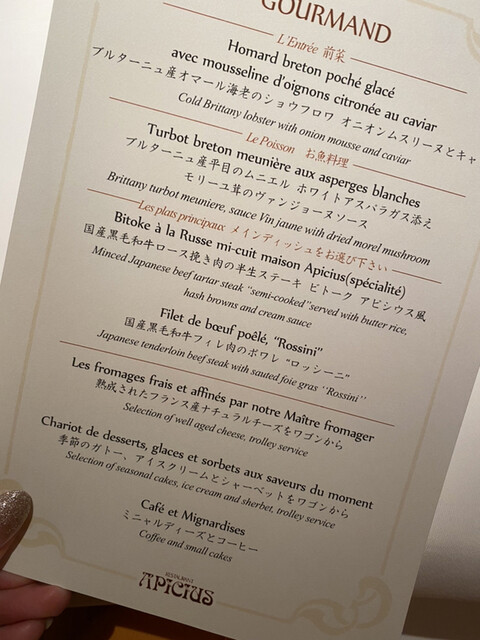 GOURMAND
L'Entrée 前菜
Homard breton poché glacé
avec mousseline d'oignons citronée au caviar
ブルターニュ産オマール海老のショウフロワ オニオンムスリーヌとキャ
Cold Brittany lobster with onion mousse and caviar
Le Poisson お魚料理
Turbot breton meunière aux asperges blanches
ブルターニュ産平目のムニエル ホワイトアスパラガス添え
モリーユ茸のヴァンジョーヌソース
Brittany turbot meuniere, sauce Vin jaune with dried morel mushroom
Les plats principaux メインディッシュをお選び下さい
Bitoke à la Russe mi-cuit maison Apicius(spécialité)
国産黒毛和牛ロース挽き肉の半生ステーキ ビトーク アピシウス風
Minced Japanese beef tartar steak "semi-cooked" served with butter rice,
hash browns and cream sauce
Filet de bœuf poêlé, "Rossini"
国産黒毛和牛フィレ肉のポワレ "ロッシーニ"
Japanese tenderloin beef steak with sauted foie gras "Rossini"
Les fromages frais et affinés par notre Maître fromager
熟成されたフランス産ナチュラルチーズをワゴンから
Selection of well aged cheese, trolley service
Chariot de desserts, glaces et sorbets aux saveurs du moment
季節のガトー、アイスクリームとシャーベットをワゴンから
Selection of seasonal cakes, ice cream and sherbet, trolley service
Café et Mignardises
ミニャルディーズとコーヒー
Coffee and small cakes
RESTAURANT
APICIUS